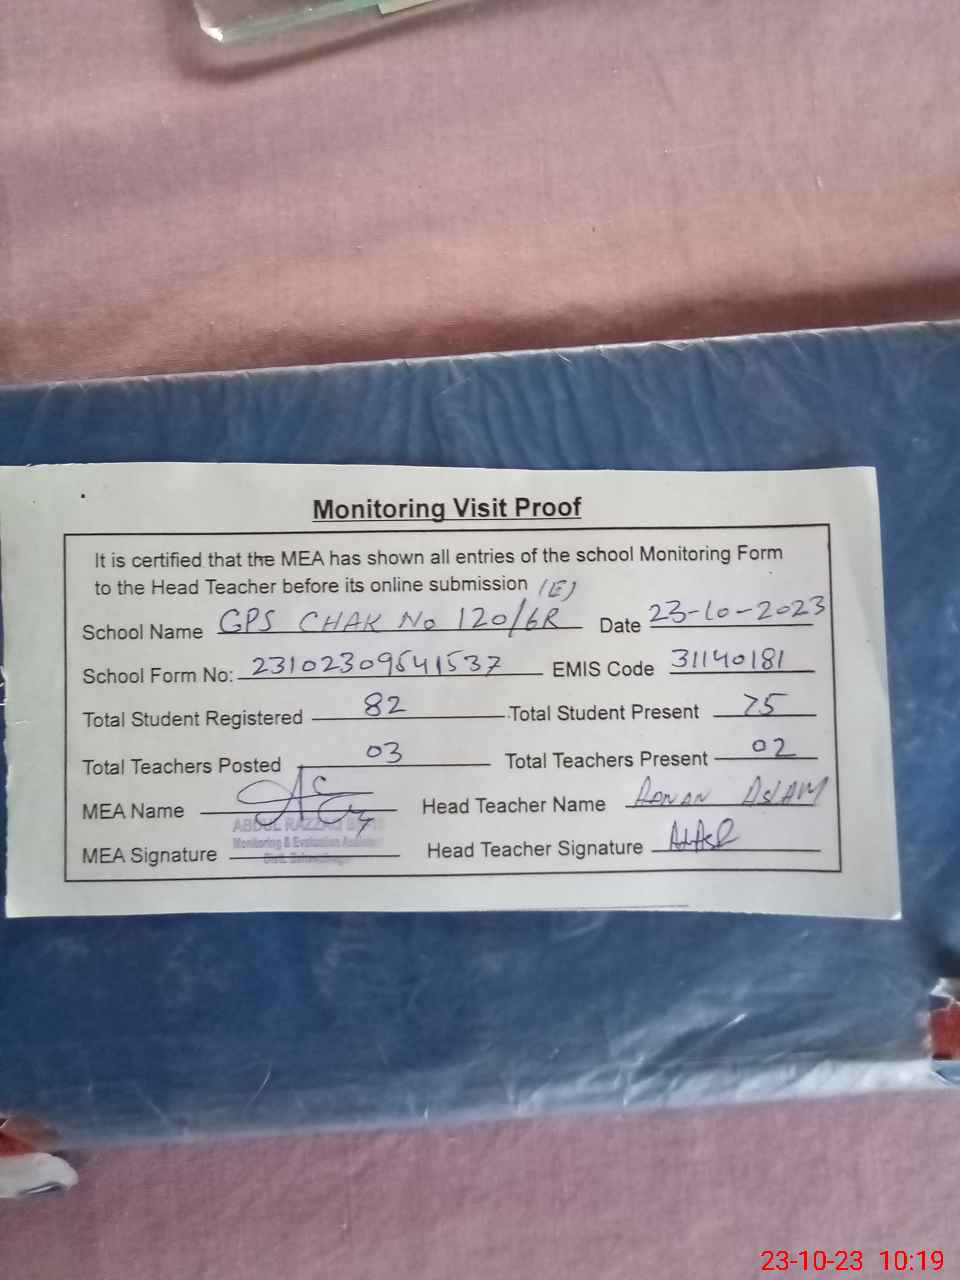 Monitoring Visit Proof
It is certified that the MEA has shown all entries of the school Monitoring Form
to the Head Teacher before its online submission (E)
School Name GPS CHAK No 120/6R Date 23-10-2023
School Form No: 23102309541537 EMIS Code 31140181
Total Student Registered 82 Total Student Present 75
Total Teachers Posted 03 Total Teachers Present 02
MEA Name Head Teacher Name ADNAN ASLAM
ABDUL RAZZAQ
Monitoring & Evaluation Assistant
MEA Signature Head Teacher Signature
Distt. Bahawalnagar
23-10-23 10:19